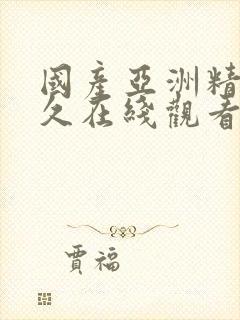 國産亞洲精
久在綫觀看
賈福